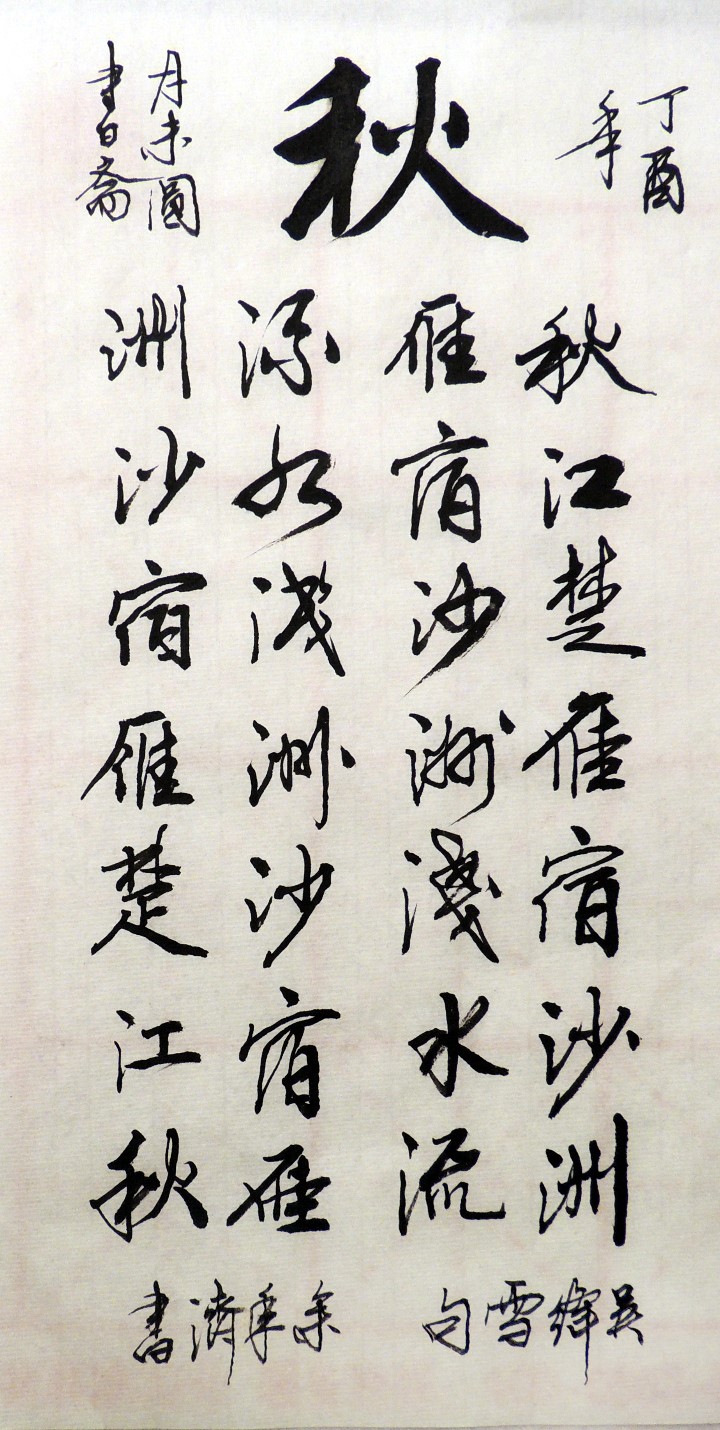 丁酉
年
秋
月未圓
書白斋
秋江楚雁宿沙洲
雁宿沙洲淺水流
流水淺洲沙宿雁
洲沙宿雁楚江秋
吴绛雪句
余濟書